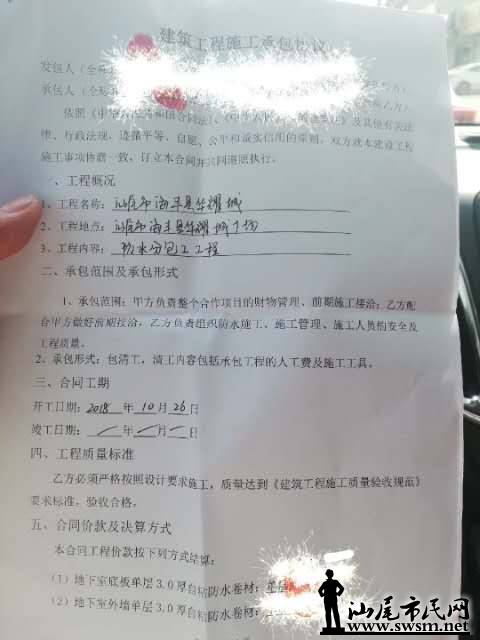 建筑工程施工承包协议
发包人（全称
承包人（全称
依照《中华人民共和国合同法》、《中华人民 及其他有关法
律、行政法规，遵循平等、自愿、公平和诚实信用的原则，双方就本建设工程
施工事项协商一致，订立本合同并共同遵照执行。
一、工程概况
1、工程名称：汕尾市海丰县华耀城
2、工程地点：汕尾市海丰县华耀城广场
3、工程内容：防水分包工工程
二、承包范围及承包形式
1、承包范围：甲方负责整个合作项目的财物管理、前期施工接洽；乙方配
合甲方做好前期接洽，乙方负责组织防水施工、施工管理、施工人员的安全及
工程质量。
2、承包形式：包清工，清工内容包括承包工程的人工费及施工工具。
三、合同工期
开工日期：2018年10月26日
竣工日期：／年／月／日
四、工程质量标准
乙方必须严格按照设计要求施工，质量达到《建筑工程施工质量验收规范》
要求标准，验收合格。
五、合同价款及决算方式
本合同工程价款按下列方式结算：
（1）地下室底板单层3.0厚自粘防水卷材：单层
（2）地下室外墙单层3.0厚自粘防水卷材：
汕尾市民网
www.swsm.net